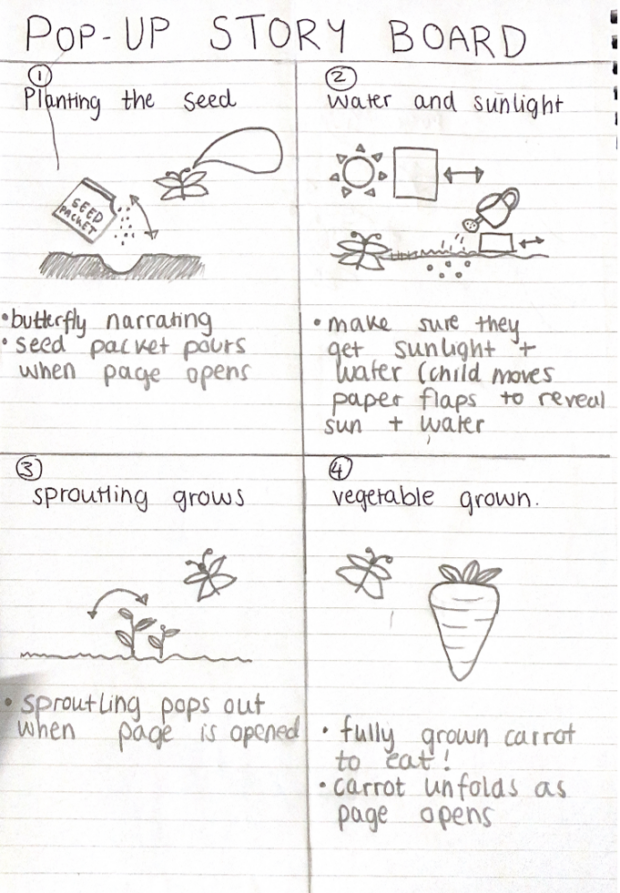 POP-UP STORY BOARD
①
Planting the seed
SEED
PACKET
•butterfly narrating
•seed packet pours
when page opens
②
water and sunlight
•make sure they
get sunlight +
water (child moves
paper flaps to reveal
sun + water
③
sproutling grows
• sproutling pops out
when page is opened
④
vegetable grown.
• fully grown carrot
to eat!
•carrot unfolds as
page opens